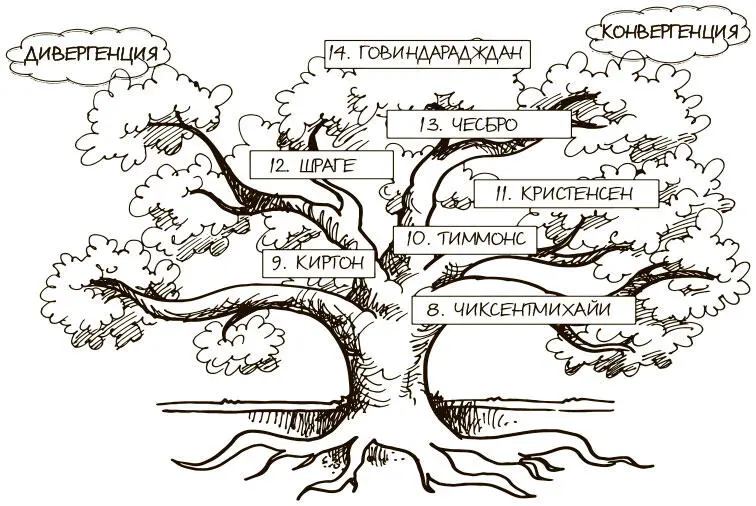 ДИВЕРГЕНЦИЯ
КОНВЕРГЕНЦИЯ
14. ГОВИНДАРАДЖДАН
13. ЧЕСБРО
12. ШРАГЕ
11. КРИСТЕНСЕН
10. ТИММОНС
9. КИРТОН
8. ЧИКСЕНТМИХАЙИ